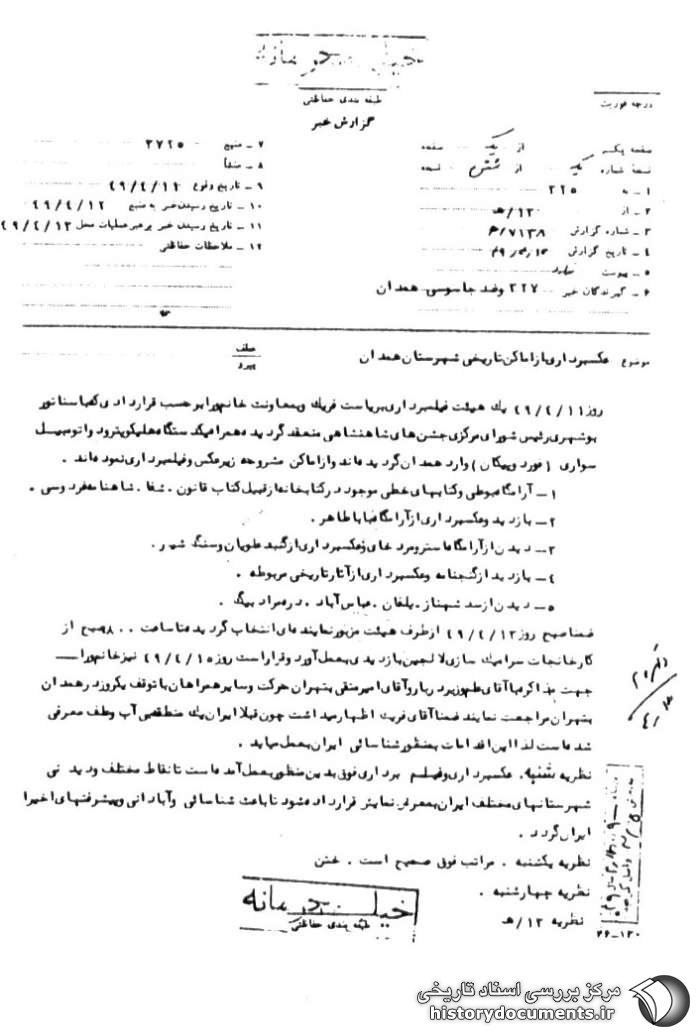 خیلی محرمانه
طبقه بندی حفاظتی
درجه فوریت
گزارش خبر
صفحه یک از یک صفحه
نسخه شماره یک از شش نسخه
۱ - به ۲۲۵
۲ - از ۱۲۰/ه‍
۳ - شماره گزارش ۷۱۳۸/م
۴ - تاریخ گزارش
۵ - پیوست ندارد
۶ - گیرندگان خبر ۲۲۷ وضد جاسوسی همدان
۷ - منبع ۲۷۲۵
۸ - منشأ
۹ - تاریخ وقوع ۴۹/۴/۱۲
۱۰ - تاریخ رسیدن خبر به منبع ۴۹/۴/۱۲
۱۱ - تاریخ رسیدن خبر برهبر عملیات محل ۴۹/۴/۱۲
۱۲ - ملاحظات حفاظتی
موضوع عکسبرداری از اماکن تاریخی شهرستان همدان
عطف
پیرو
روز ۴۹/۴/۱۱ یک هیئت فیلمبرداری بریاست فریک و بمعاونت خانم پورا برحسب قراردادی که با سناتور
بوشهری رئیس شورای مرکزی جشن های شاهنشاهی منعقد گردیده همراه یکدستگاه هلیکوپتر و دو اتومبیل
سواری (فورد و پیکان) وارد همدان گردیده اند و از اماکن مشروحه زیر عکس و فیلمبرداری نموده اند .
۱ - آرامگاه بوعلی و کتابهای خطی موجود در کتابخانه از قبیل کتاب قانون . شفا . شاهنامه فردوسی .
۲ - بازدید و عکسبرداری از آرامگاه باباطاهر .
۳ - دیدن از آرامگاه استر و مردخای و عکسبرداری از گنبد علویان و سنگ شیر .
۴ - بازدید از گنجنامه و عکسبرداری از آثار تاریخی مربوطه .
۵ - دیدن از سد شهناز . یلفان . عباس آباد . دره مراد بیگ .
ضمنا صبح روز ۴۹/۴/۱۲ از طرف هیئت مزبور نماینده ای انتخاب گردیده تا ساعت ۰۸۰۰ صبح از
کارخانجات سرامیک سازی لالجین بازدیدی بعمل آورد و قرار است روز ۴۹/۴/۱۵ نیز خانم پورا
جهت مذاکره با آقای طهوزیر دربار و آقای امیر متقی بتهران حرکت و سایر همراهان با توقف یکروز در همدان
بتهران مراجعت نمایند ضمنا آقای فریک اظهار میداشت چون قبلا ایران یک منطقه بی آب و علف معرفی
شده است لذا این اقدامات بمنظور شناسائی ایران بعمل میاید .
نظریه شنبه . عکسبرداری و فیلم برداری فوق بدین منظور بعمل آمده است تا نقاط مختلف و دیدنی
شهرستانهای مختلف ایران بمعرض نمایش قرار داده شود تا باعث شناسائی و آبادانی و پیشرفتهای اخیر
ایران گردد .
نظریه یکشنبه . مراتب فوق صحیح است . ختن
نظریه چهارشنبه .
نظریه ۱۲/ه‍
خیلی محرمانه
طبقه بندی حفاظتی
۲۶-۱۲۰
مرکز بررسی اسناد تاریخی
historydocuments.ir